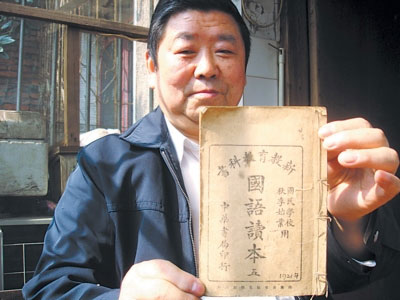 新教育教科書
國民學校
秋季始業用
國語讀本 五
中華書局印行
1921年